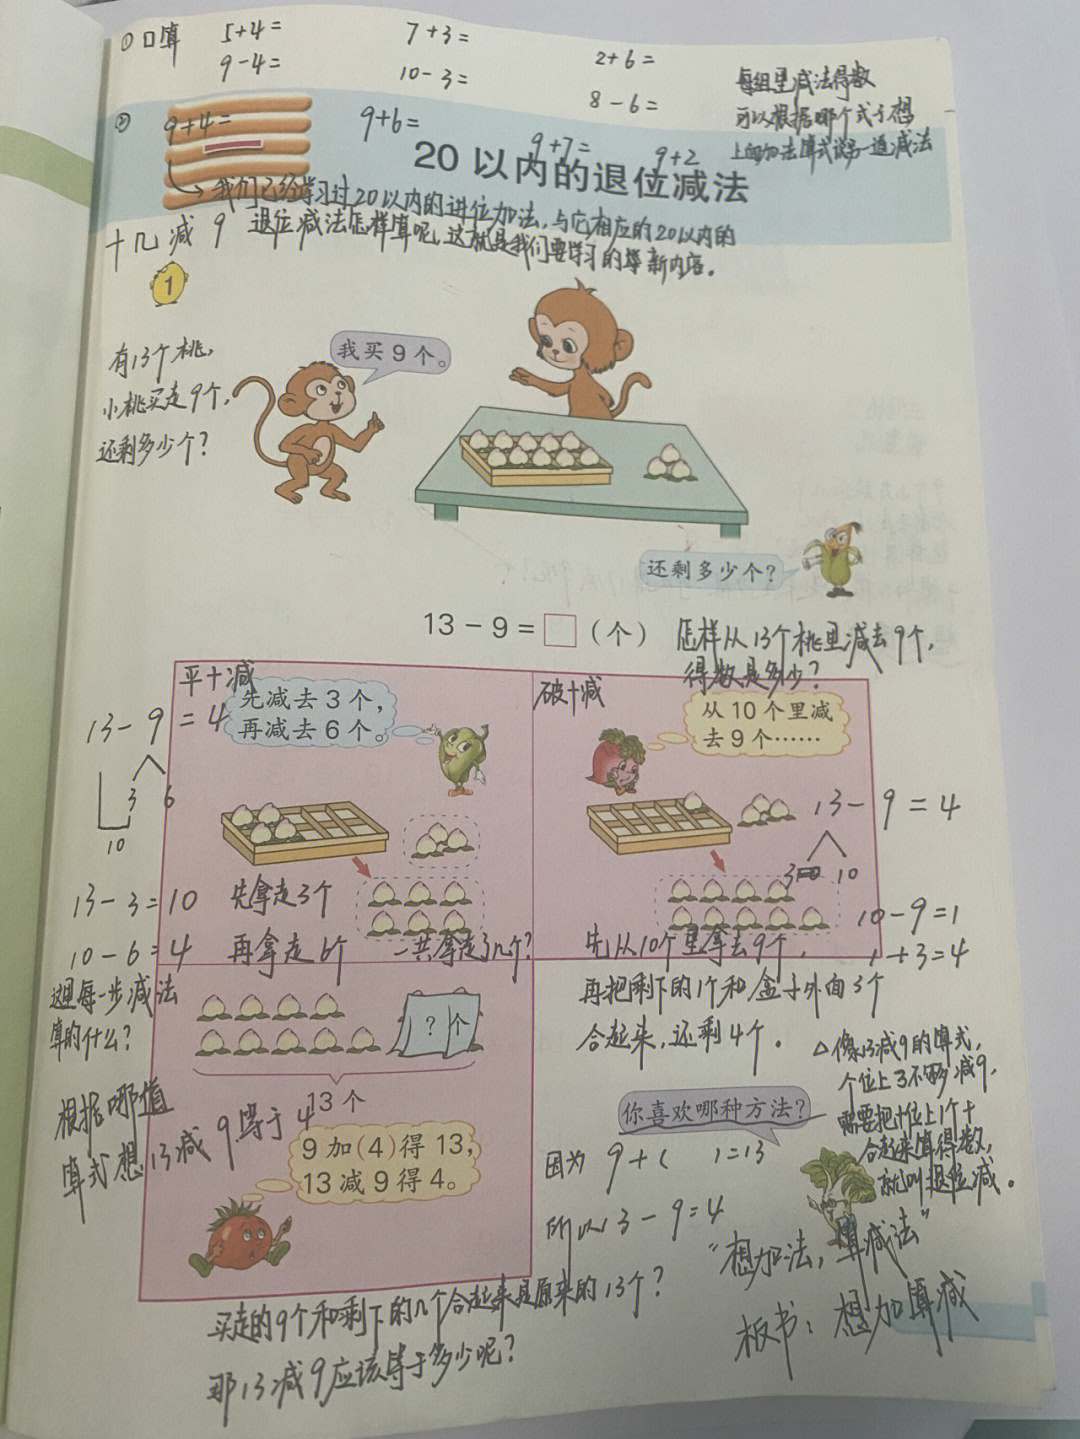 ①口算 5+4= 7+3= 2+6=
9-4= 10-3= 8-6=
每组里减法得数
可以根据哪个式子想
上面加法算式说另一道减法
② 9+4= 9+6= 9+7= 9+2
20以内的退位减法
我们已经学习过20以内的进位加法,与它相应的20以内的
退位减法怎样算呢,这就是我们要学习的新内容。
十几减9
1
有13个桃,
小桃买走9个,
还剩多少个?
我买9个。
还剩多少个?
13-9=□(个)
怎样从13个桃里减去9个,
得数是多少?
平十减
先减去3个,
再减去6个。
13-9=4
3 6
10
13-3=10 先拿走3个
10-6=4 再拿走6个 一共拿走了几个?
这里每一步减法
算的什么?
破十减
从10个里减
去9个……
13-9=4
3 10
10-9=1
1+3=4
先从10个里拿去9个,
再把剩下的1个和盒子外面3个
合起来,还剩4个。
?个
13个
9加(4)得13,
13减9得4。
根据哪道
算式想13减9等于4
你喜欢哪种方法?
△像13减9的算式,
个位上3不够减9,
需要把十位上1个十
合起来算得数,
就叫退位减。
因为 9+( )=13
所以13-9=4
“想加法,算减法”
板书:想加算减
买走的9个和剩下的几个合起来是原来的13个?
那13减9应该等于多少呢?